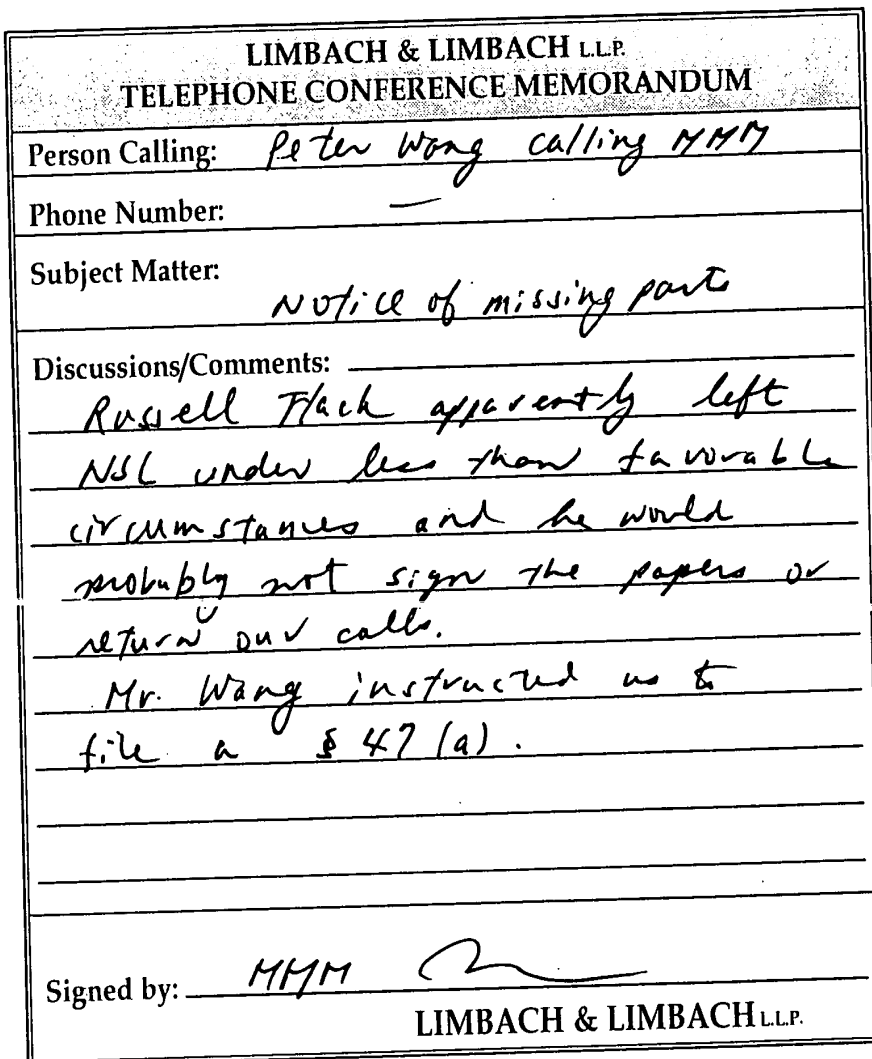 LIMBACH & LIMBACH L.L.P.
TELEPHONE CONFERENCE MEMORANDUM
Person Calling: Peter Wang calling MMM
Phone Number: —
Subject Matter:
Notice of missing parts
Discussions/Comments:
Russell Flack apparently left
NSC under less than favorable
circumstances and he would
probably not sign the papers or
return our calls.
Mr. Wang instructed us to
file a § 47 (a).
Signed by: MMM
LIMBACH & LIMBACH L.L.P.